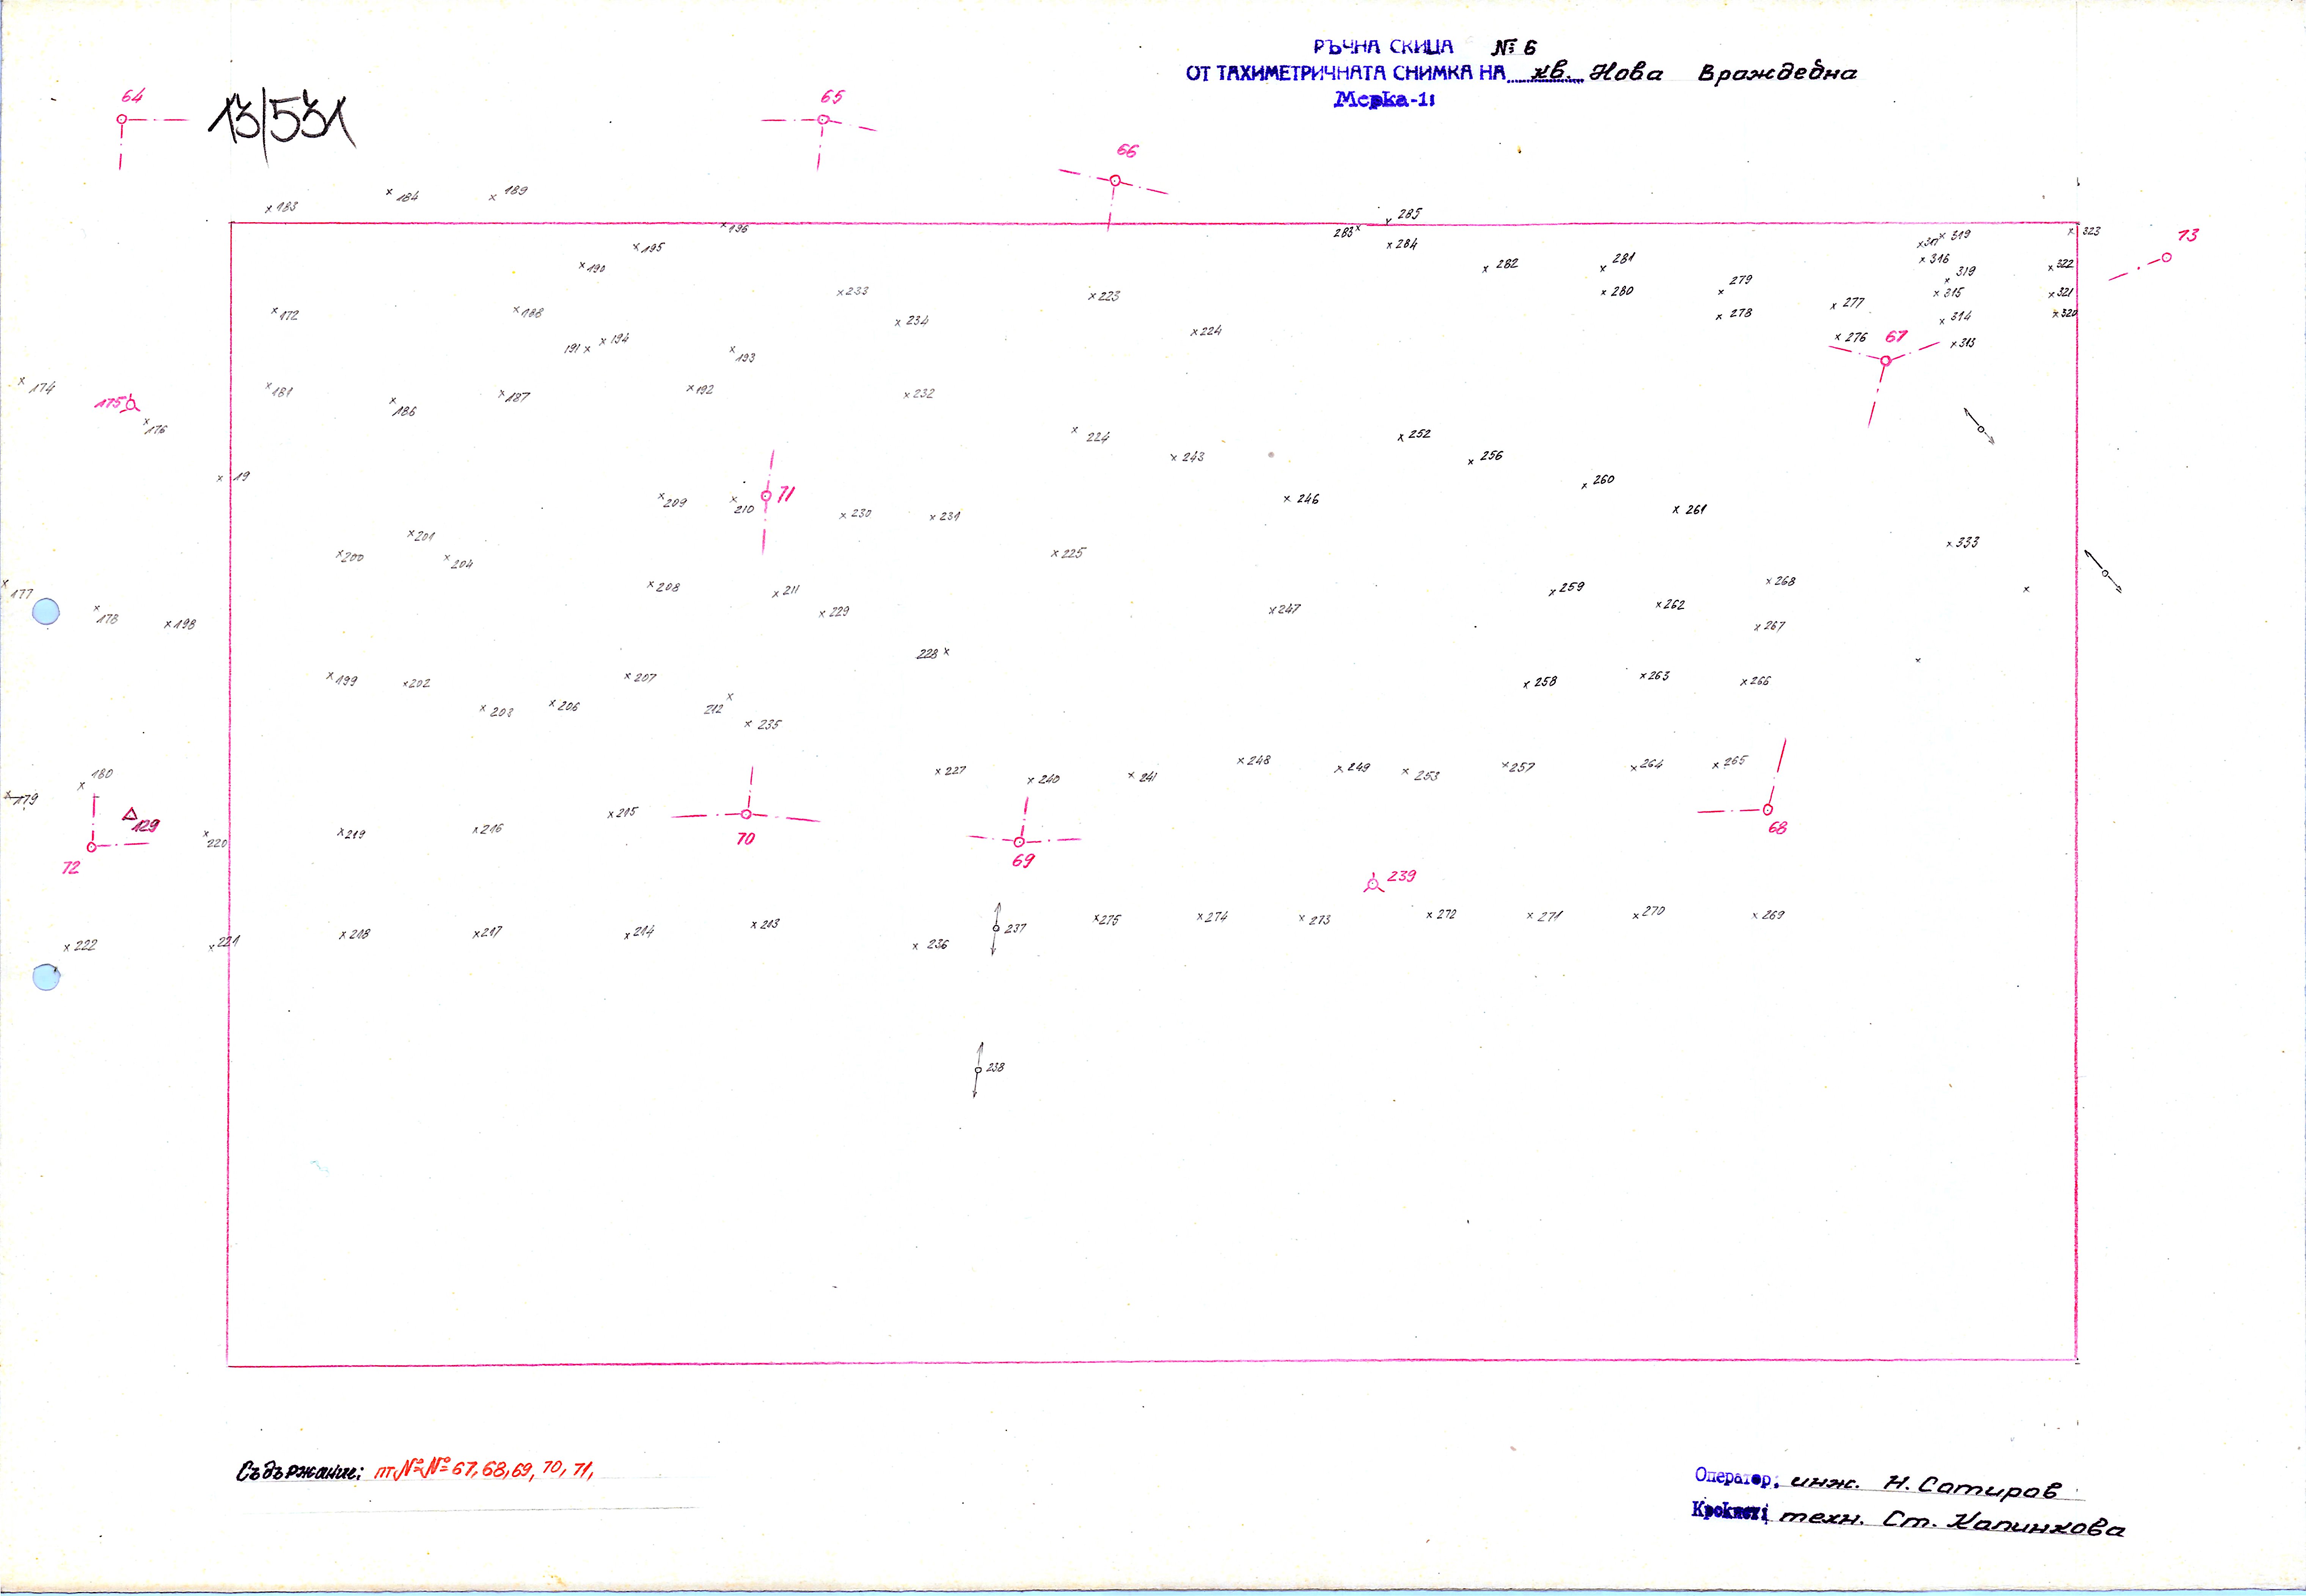 РЪЧНА СКИЦА № 6
ОТ ТАХИМЕТРИЧНАТА СНИМКА НА кв. Нова Враждебна
Мерка-1:
13/531
64
65
66
183
184
189
285
196
283
284
195
190
282
281
317
319
323
73
316
322
319
279
280
315
321
172
188
233
234
223
224
278
277
314
320
276
67
313
191
194
193
174
181
175
186
187
192
232
176
224
243
252
256
19
209
210
71
230
231
246
260
261
200
201
204
225
333
177
208
211
229
259
268
262
178
198
247
267
228
199
202
207
258
263
266
203
206
212
235
180
227
240
241
248
249
253
257
264
265
179
129
220
219
216
215
70
69
68
72
239
222
221
218
217
214
213
236
237
275
274
273
272
271
270
269
238
Съдържание: пт №№ 67, 68, 69, 70, 71,
Оператор: инж. Н. Сотиров
Крокист: техн. Ст. Калинкова